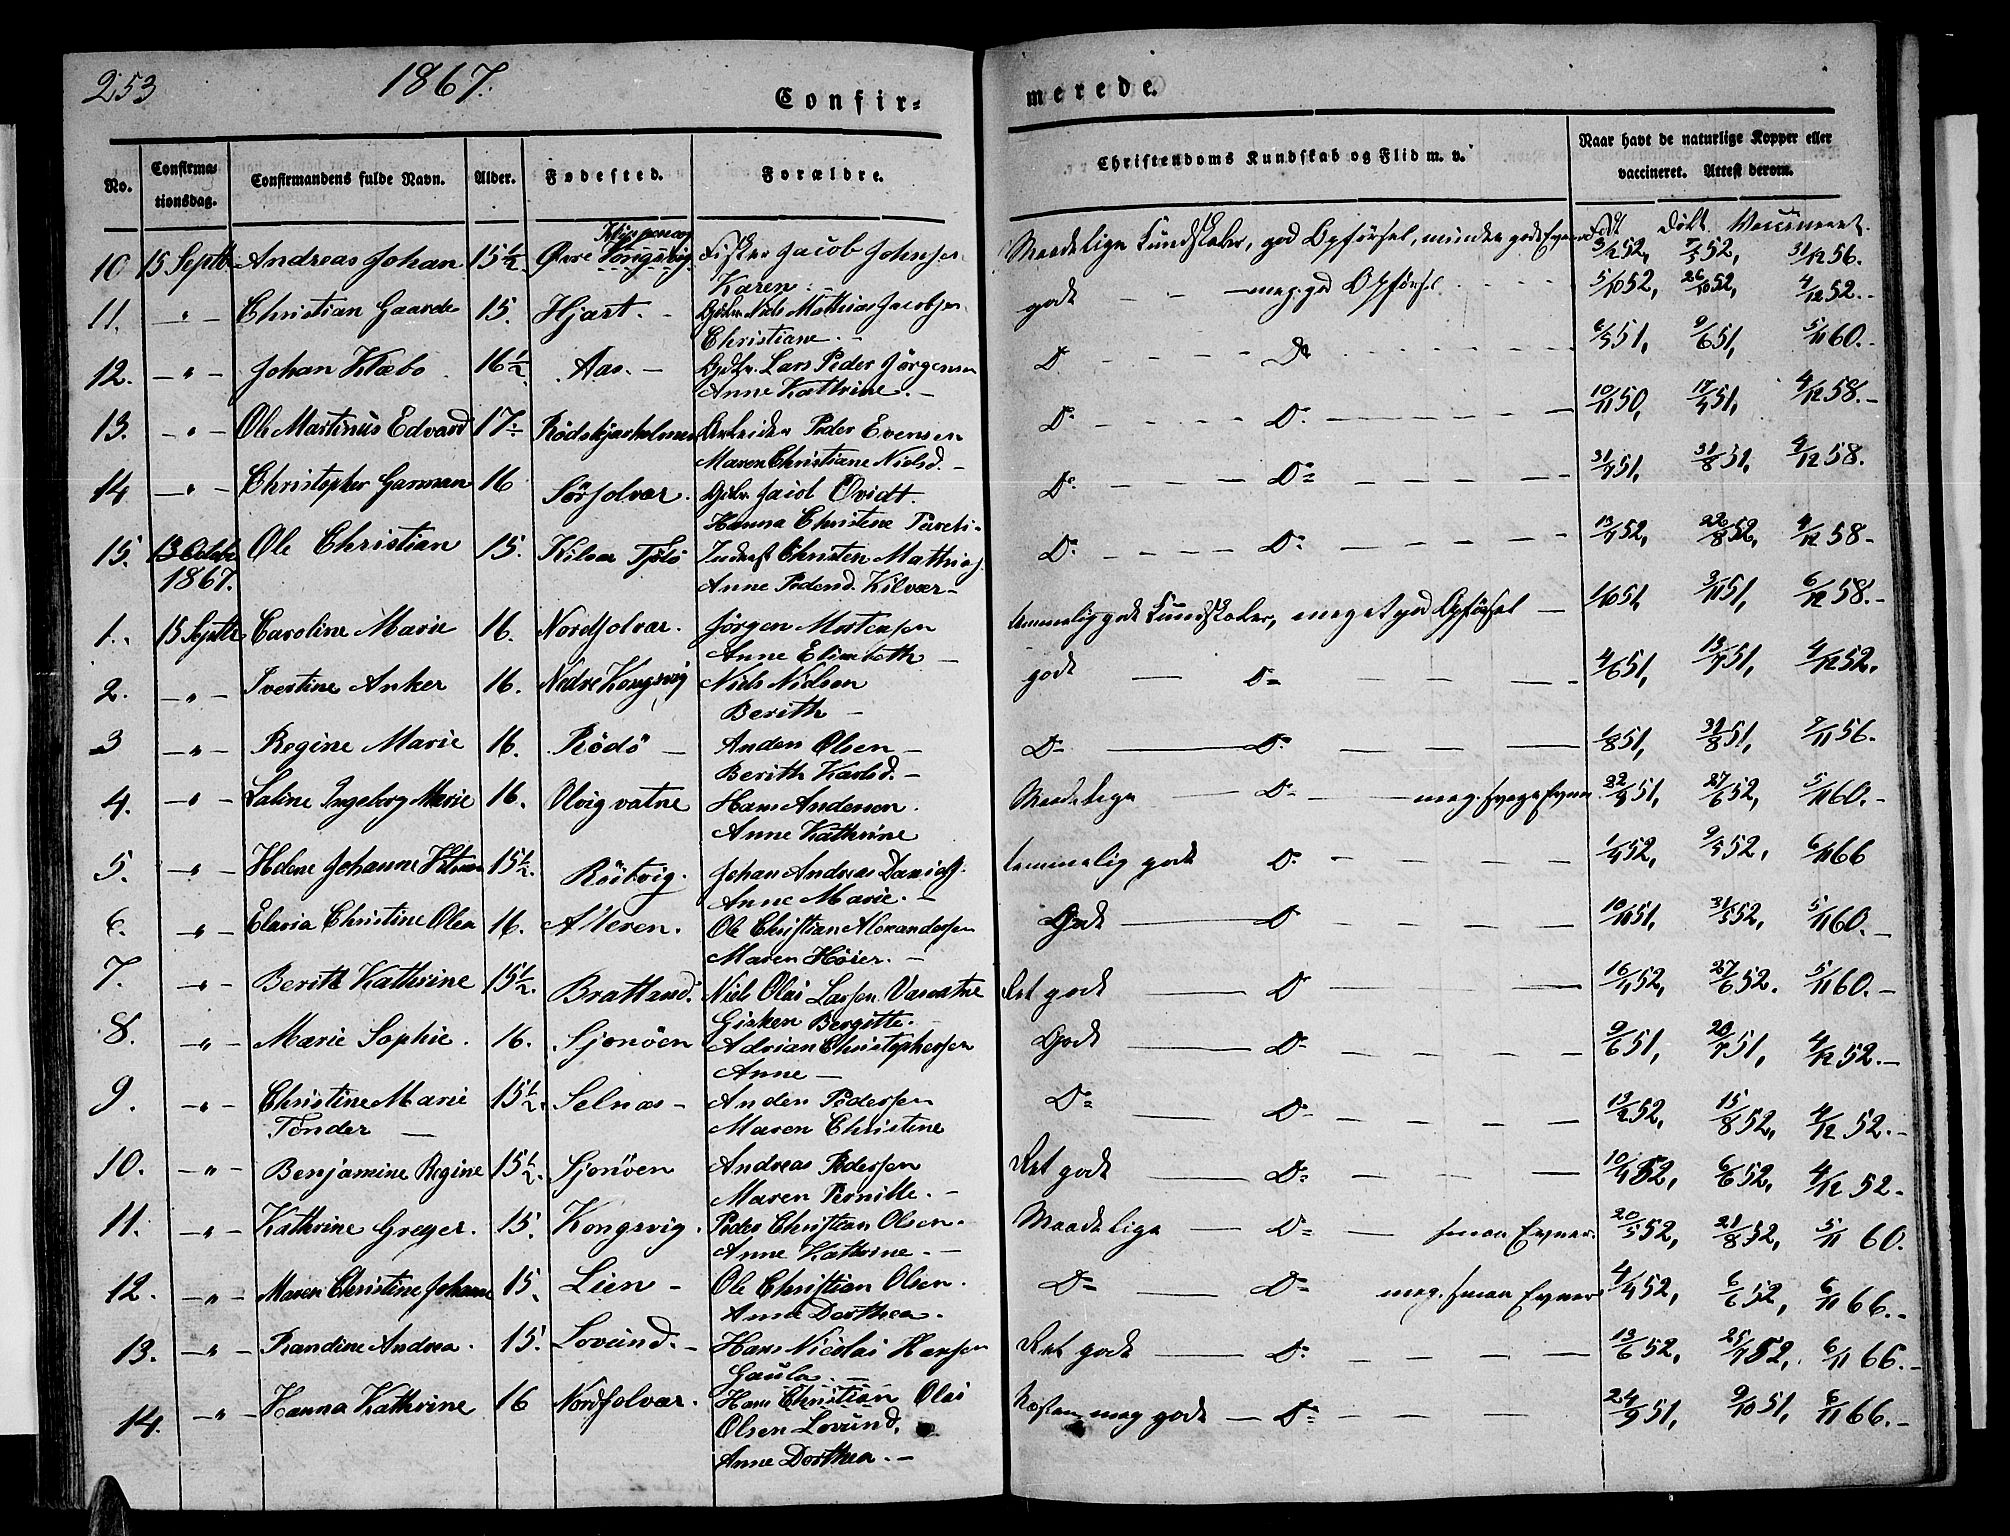 253 1867. Confir- merede.
No. Confirma- tionsdag. Confirmandens fulde Navn. Alder. Fødested. Forældre. Christendoms Kundskab og Flid m. v. Naar havt de naturlige Kopper eller vaccineret. Attest derom.
Født Døbt Vaccineret
10 15 Septbr Andreas Johan 15½ Øvre Kongsvig Fisker Jacob Johnsen Maadelige Kundskaber, god Opførsel, mindre gode Evner 3/2 52, 7/5 52, 31/12 56.
Karen.
11. " Christian Gaarder 15. Hjart. Gdbr. Niels Mathias Jacobsen godt meg. god Opførsel 5/10 52, 26/10 52, 4/12 52.
Christiane.
12. " Johan Klæbo 16½ Aas. Gdbr. Lars Peder Jørgensen D° D° 6/5 51, 9/6 51, 5/11 60.
Anne Kathrine.
13. " Ole Martinus Edvard 17. Rödskjæholmen Arbeider Peder Evensen D° D° 10/11 50, 17/4 51, 4/12 58.
Maren Christiane Nielsd.
14 " Christopher Garman 16 Sörsolvær. Gdbr. Jacob Qvidt. D° D° 31/7 51, 31/8 51, 4/12 58.
Hanna Christine
15. 13 Octobr 1867. Ole Christian 15. Kilvær Christen Mathias D° D° 13/7 52, 22/8 52, 4/12 58.
Anne Pedersd. Kilvær
1. 15 Septbr Caroline Marie 16. Nordsolvær. Jörgen Mortensen temmelig gode Kundskaber, meget god Opførsel 1/10 51, 3/11 51, 6/12 58.
Anne Elisabeth
2. " Ivertine Anker 16. Nedre Kongsvig Niels Nielsen godt D° 4/6 51, 13/7 51, 4/12 52.
Berith
3 " Regine Marie 16. Rödö Anders Olsen D° D° 1/8 51, 31/8 51, 7/11 56.
Berith Karlsd.
4. " Laline Ingeborg Marie 16. Olvigvatne Hans Andersen. Maadelige D° meg. svage Evner 22/9 51, 27/6 52, 5/11 60.
Anne Kathrine
5. " Helene Johanne 15½. Röitvig. Johan Andreas Davids. temmelig godt D° 1/4 52, 9/5 52, 6/11 66
Anne Marie.
6. " Elaria Christine Olea 16. Alteren. Ole Christian Alexandersen Godt D° 10/11 51, 31/5 52, 5/11 60.
Maren Höier.
7. " Berith Kathrine 15½. Bratland. Niels Olai Larsen Vasvatne Ret godt D° 16/4 52, 27/6 52. 5/11 60.
Gisken Bergitte.
8. " Marie Sophie. 16. Sjonöen Adrian Christophersen Godt D° 9/6 51, 20/7 51, 4/12 52.
Anne
9. " Christine Marie 15½. Selnæs Anders Pedersen D° D° 13/2 52, 15/8 52, 4/12 52.
Tönder Maren Christine
10. " Benjamine Regine 15½. Sjonöen Andreas Pedersen Ret godt D° 10/4 52, 6/6 52, 4/12 52.
Maren Pernille.
11. " Kathrine Greger. 15. Kongsvig. Peder Christian Olsen. Maadelige D° smaa Evner. 20/5 52, 21/8 52, 5/11 60.
Anne Kathrine.
12. " Maren Christine Johanne 15. Lien Ole Christian Olsen. D° D° meg. smaa Evner 4/4 52, 6/6 52, 6/11 66.
Anne Dorthea.
13. " Randine Andrea. 15. Lovund. Hans Nicolai Hansen Ret godt D° 13/6 52, 25/7 52, 6/11 66.
Gaula
14. " Hanna Kathrine 16 Nordsolvær. Hans Christian Olai Næsten meg godt D° 24/9 51, 9/10 51, 6/11 66.
Olsen Lovund,
Anne Dorthea.